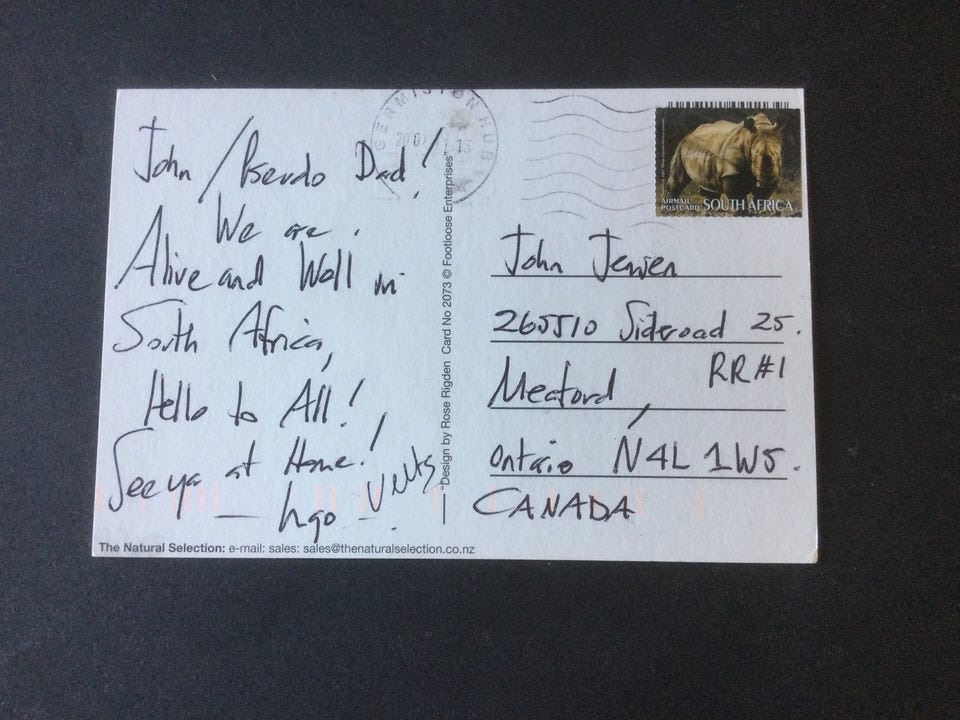 John / Pseudo Dad!
We are
Alive and Well in
South Africa,
Hello to All!
See ya at Home!
"Design by Rose Rigden Card No 2073 © Footloose Enterprises"
The Natural Selection: e-mail: sales: sales@thenaturalselection.co.nz
GERMISTON HUB
AIRMAIL
POSTCARD SOUTH AFRICA
John Jensen
265510 Sideroad 25.
RR#1
Meaford,
Ontario N4L 1W5.
CANADA